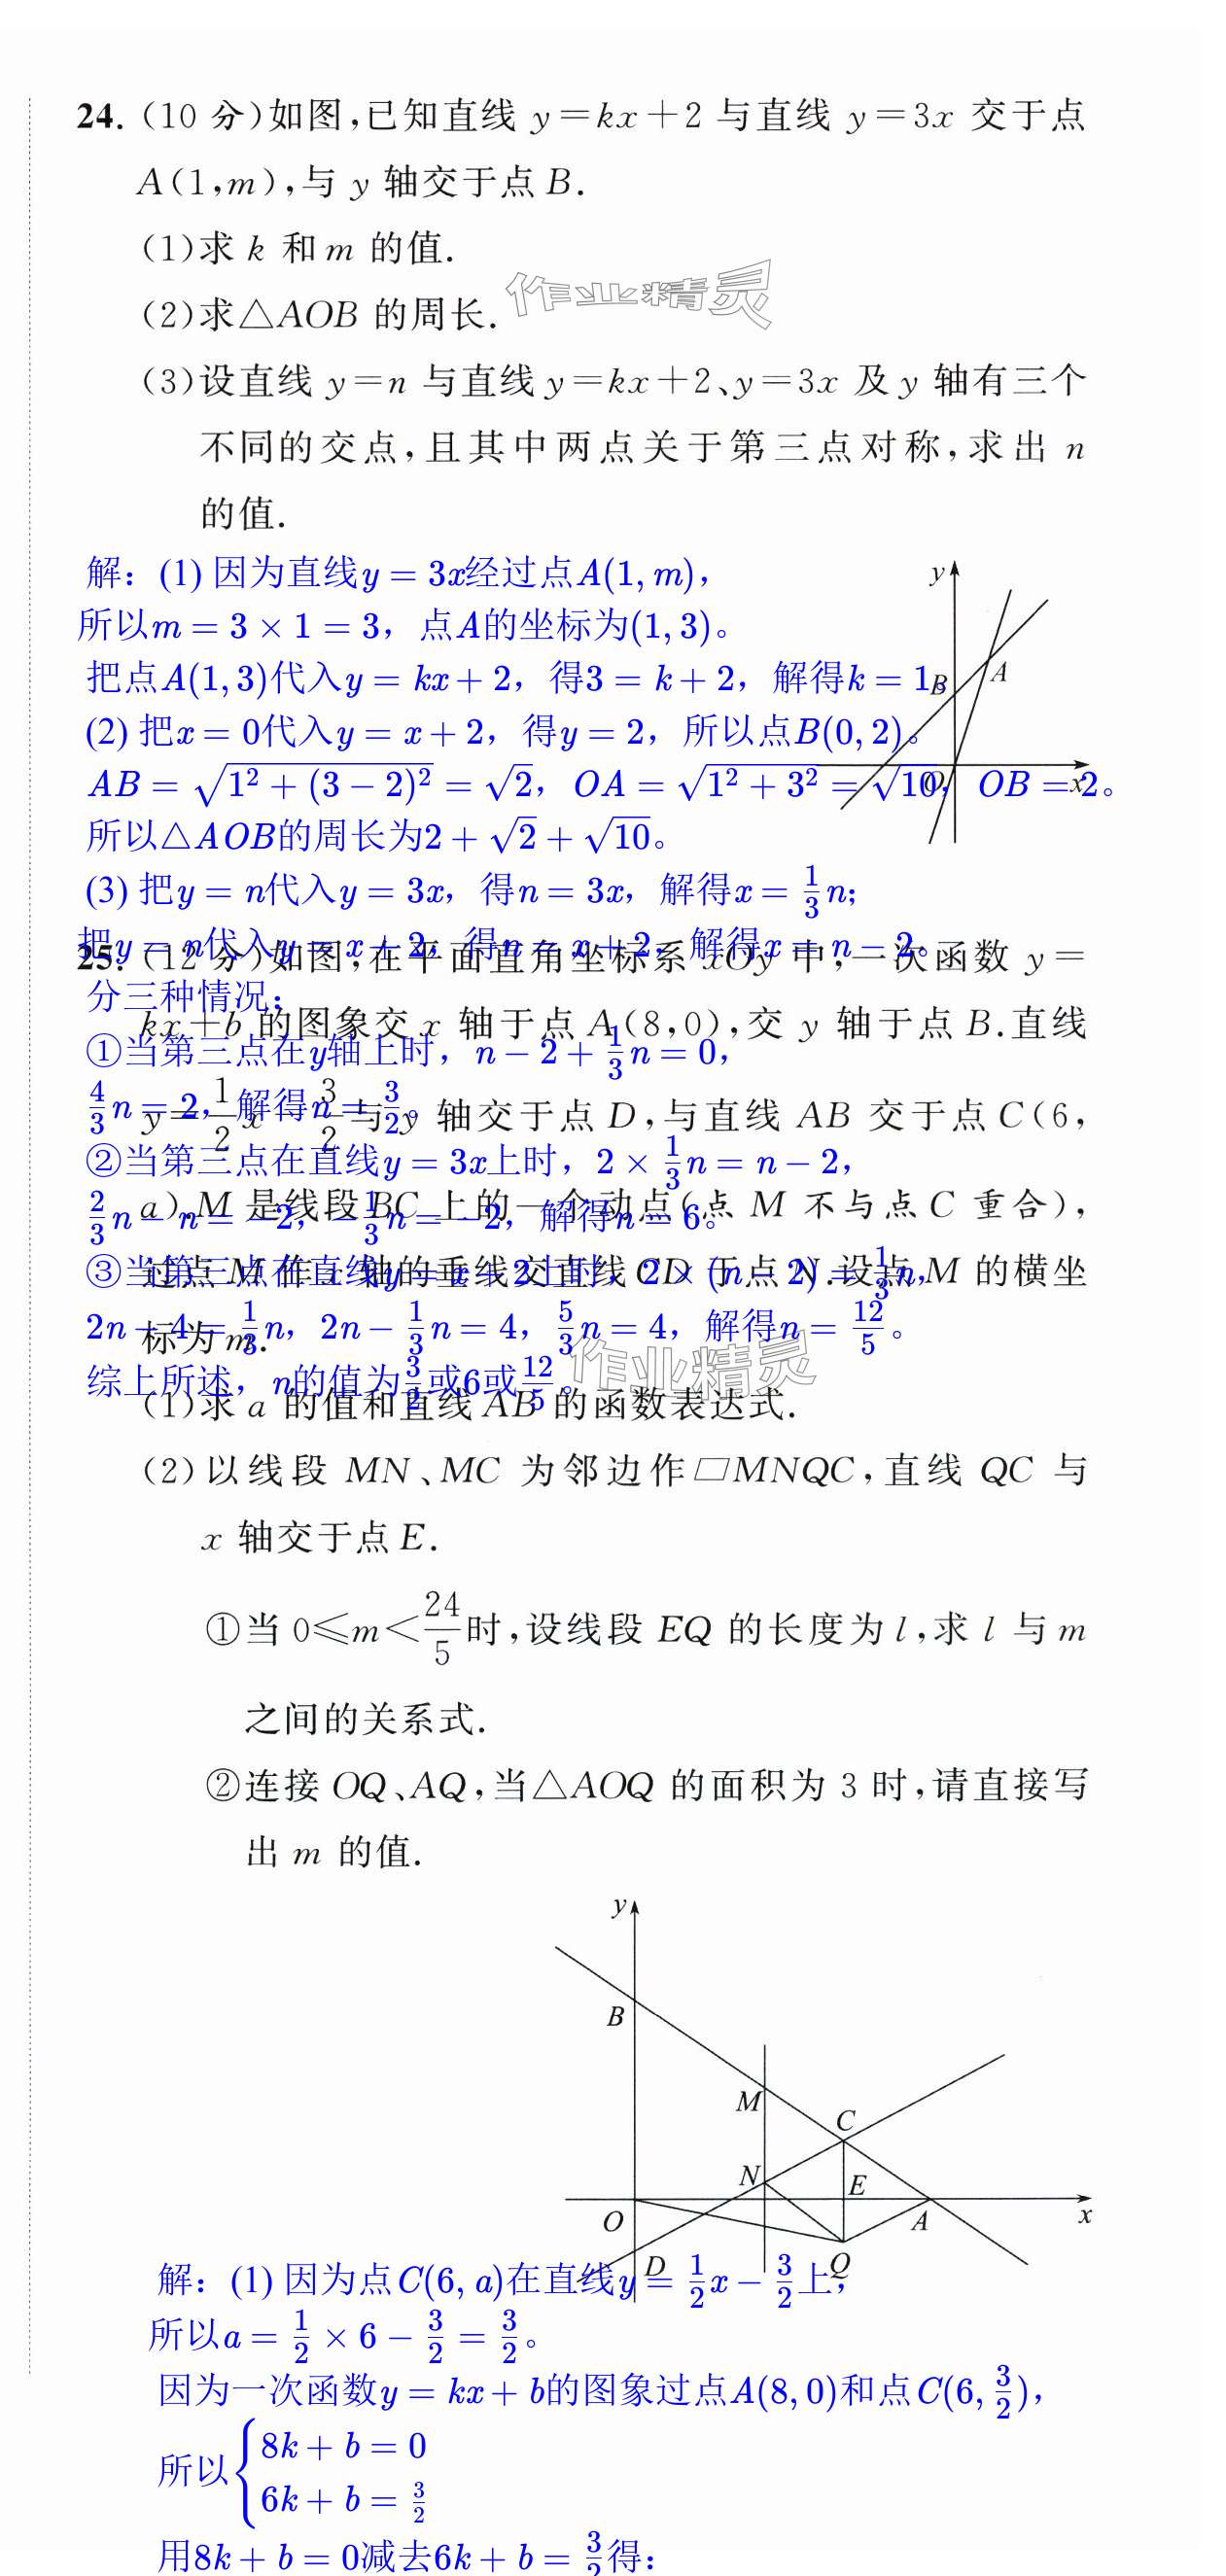 24. (10 分)如图,已知直线 y=kx+2 与直线 y=3x 交于点
A(1,m),与 y 轴交于点 B.
(1)求 k 和 m 的值.
(2)求△AOB 的周长.
作业精灵
(3)设直线 y=n 与直线 y=kx+2、y=3x 及 y 轴有三个
不同的交点,且其中两点关于第三点对称,求出 n
的值.
解：(1) 因为直线y = 3x经过点A(1, m)，
所以m = 3 × 1 = 3，点A的坐标为(1, 3)。
把点A(1, 3)代入y = kx + 2，得3 = k + 2，解得k = 1。
(2) 把x = 0代入y = x + 2，得y = 2，所以点B(0, 2)。
AB = √(1² + (3 − 2)²) = √2，OA = √(1² + 3²) = √10，OB = 2。
所以△AOB的周长为2 + √2 + √10。
(3) 把y = n代入y = 3x，得n = 3x，解得x = 1/3 n;
把y = n代入y = x + 2，得n = x + 2，解得x = n − 2。
y
A
B
O
x
25. (12 分)如图,在平面直角坐标系 xOy 中,一次函数 y=
分三种情况：
kx+b 的图象交 x 轴于点 A(8,0),交 y 轴于点 B.直线
①当第三点在y轴上时，n − 2 + 1/3 n = 0，
4/3 n = 2，解得n = 3/2。
y=1/2 x−3/2 与 y 轴交于点 D,与直线 AB 交于点 C(6,
②当第三点在直线y = 3x上时，2 × 1/3 n = n − 2，
a).M 是线段 BC 上的一个动点(点 M 不与点 C 重合),
2/3 n − n = −2，−1/3 n = −2，解得n = 6。
过点 M 作 x 轴的垂线交直线 CD 于点 N.设点 M 的横坐
③当第三点在直线y = x + 2上时，2 × (n − 2) = 1/3 n，
2n − 4 = 1/3 n，2n − 1/3 n = 4，5/3 n = 4，解得n = 12/5。
标为 m.
作业精灵
综上所述，n的值为3/2或6或12/5。
(1)求 a 的值和直线 AB 的函数表达式.
(2)以线段 MN、MC 为邻边作▱MNQC,直线 QC 与
x 轴交于点 E.
①当 0≤m<24/5时,设线段 EQ 的长度为 l,求 l 与 m
之间的关系式.
②连接 OQ、AQ,当△AOQ 的面积为 3 时,请直接写
出 m 的值.
y
B
M
C
N
E
O
A
x
D
Q
解：(1) 因为点C(6, a)在直线y = 1/2 x − 3/2上，
所以a = 1/2 × 6 − 3/2 = 3/2。
因为一次函数y = kx + b的图象过点A(8, 0)和点C(6, 3/2)，
所以{8k + b = 0
6k + b = 3/2
用8k + b = 0减去6k + b = 3/2得：